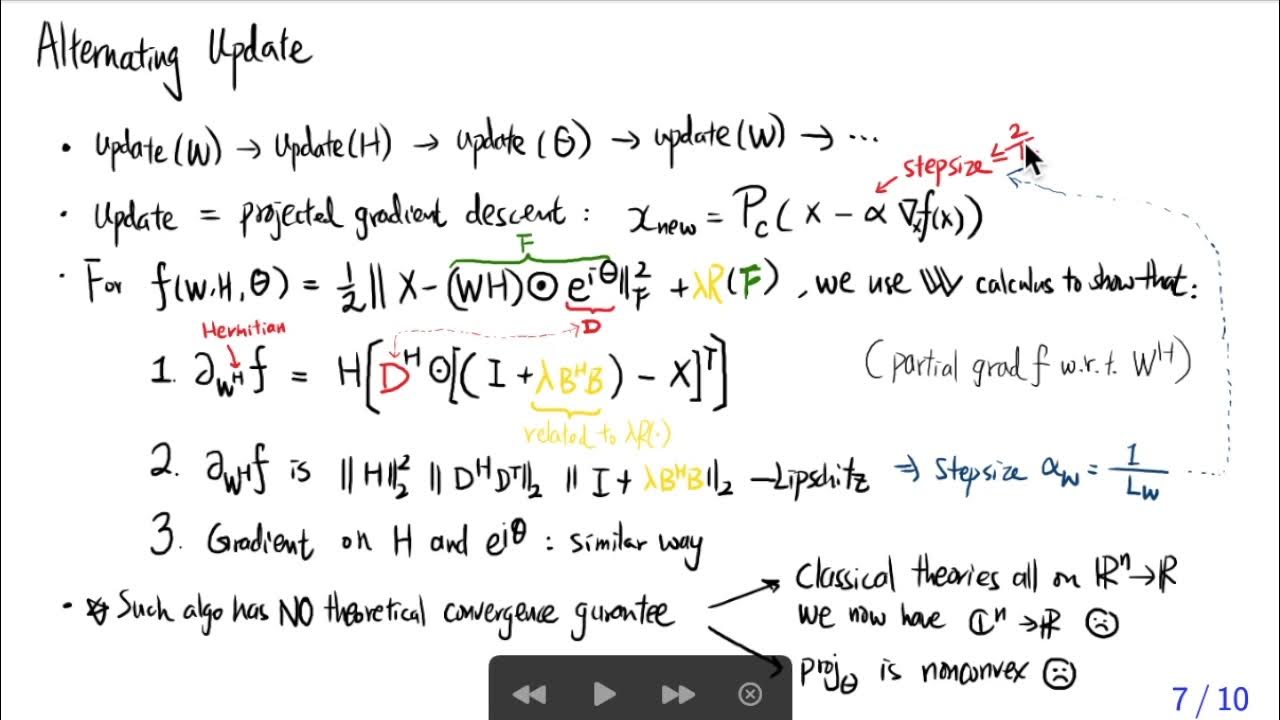 Alternating Update
• Update(W) → Update(H) → update(Θ) → update(W) → ...
stepsize = 2
• Update = projected gradient descent : x_new = P_C( x − α ∇_x f(x))
F
• For f(W,H,Θ) = 1/2 ‖ X − (WH) ⊙ e^{iΘ} ‖_F^2 + λR(F) , we use W calculus to show that:
Hermitian
D
1. ∂_{W^H} f = H[D^H ⊙ [(I + λB^HB) − X]^T] (partial grad f w.r.t. W^H)
related to λR(·)
2. ∂_{W^H} f is ‖H‖_2^2 ‖D^H D^T‖_2 ‖I + λB^HB‖_2 −Lipschitz ⇒ Stepsize α_W = 1/L_W
3. Gradient on H and e^{iθ} : similar way
• Such algo has NO theoretical convergence gurantee
Classical theories all on ℝ^n → ℝ
we now have ℂ^n → ℝ ☹
proj_Θ is nonconvex ☹
7 / 10